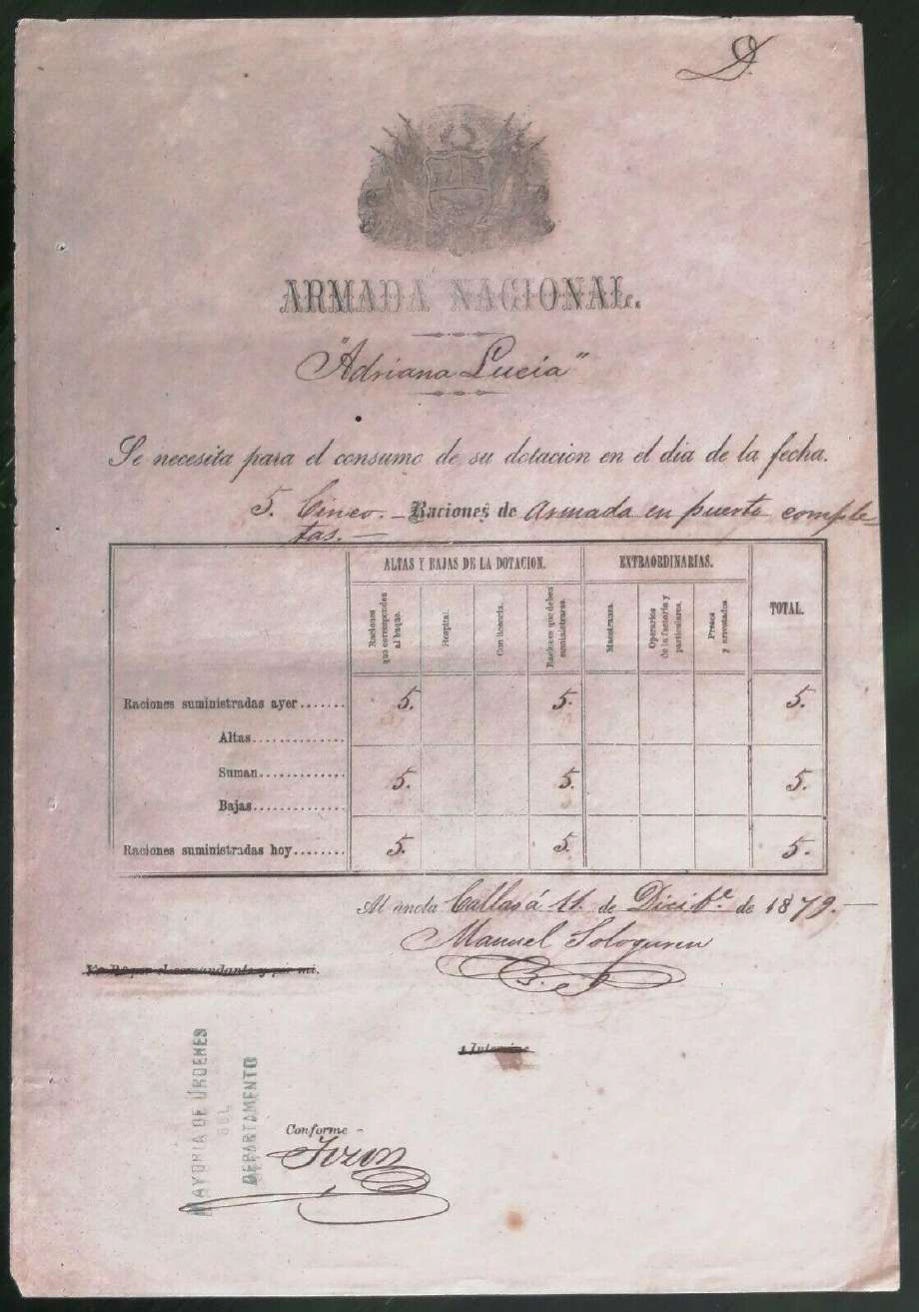 D.
ARMADA NACIONAL.
"Adriana Lucia"
Se necesita para el consumo de su dotacion en el dia de la fecha.
5. Cinco. — Raciones de Armada en puerto comple-
tas. —
ALTAS Y BAJAS DE LA DOTACION. EXTRAORDINARIAS.
Raciones que corresponden al buque. Hospital. Con licencia. Raciones que deben suministrarse. Maestranza. Operarios de la factoria y particulares. Presos y arrestados TOTAL.
Raciones suministradas ayer....... 5. 5. 5.
Altas..............
Suman............. 5. 5. 5.
Bajas..............
Raciones suministradas hoy........ 5. 5. 5.
Al ancla Callao á 11. de Dicibe. de 1879. —
Manuel Sologuren
Vo Bo por el comandante y por mi.
Conforme -
MAYORIA DE ÓRDENES
DEL
DEPARTAMENTO